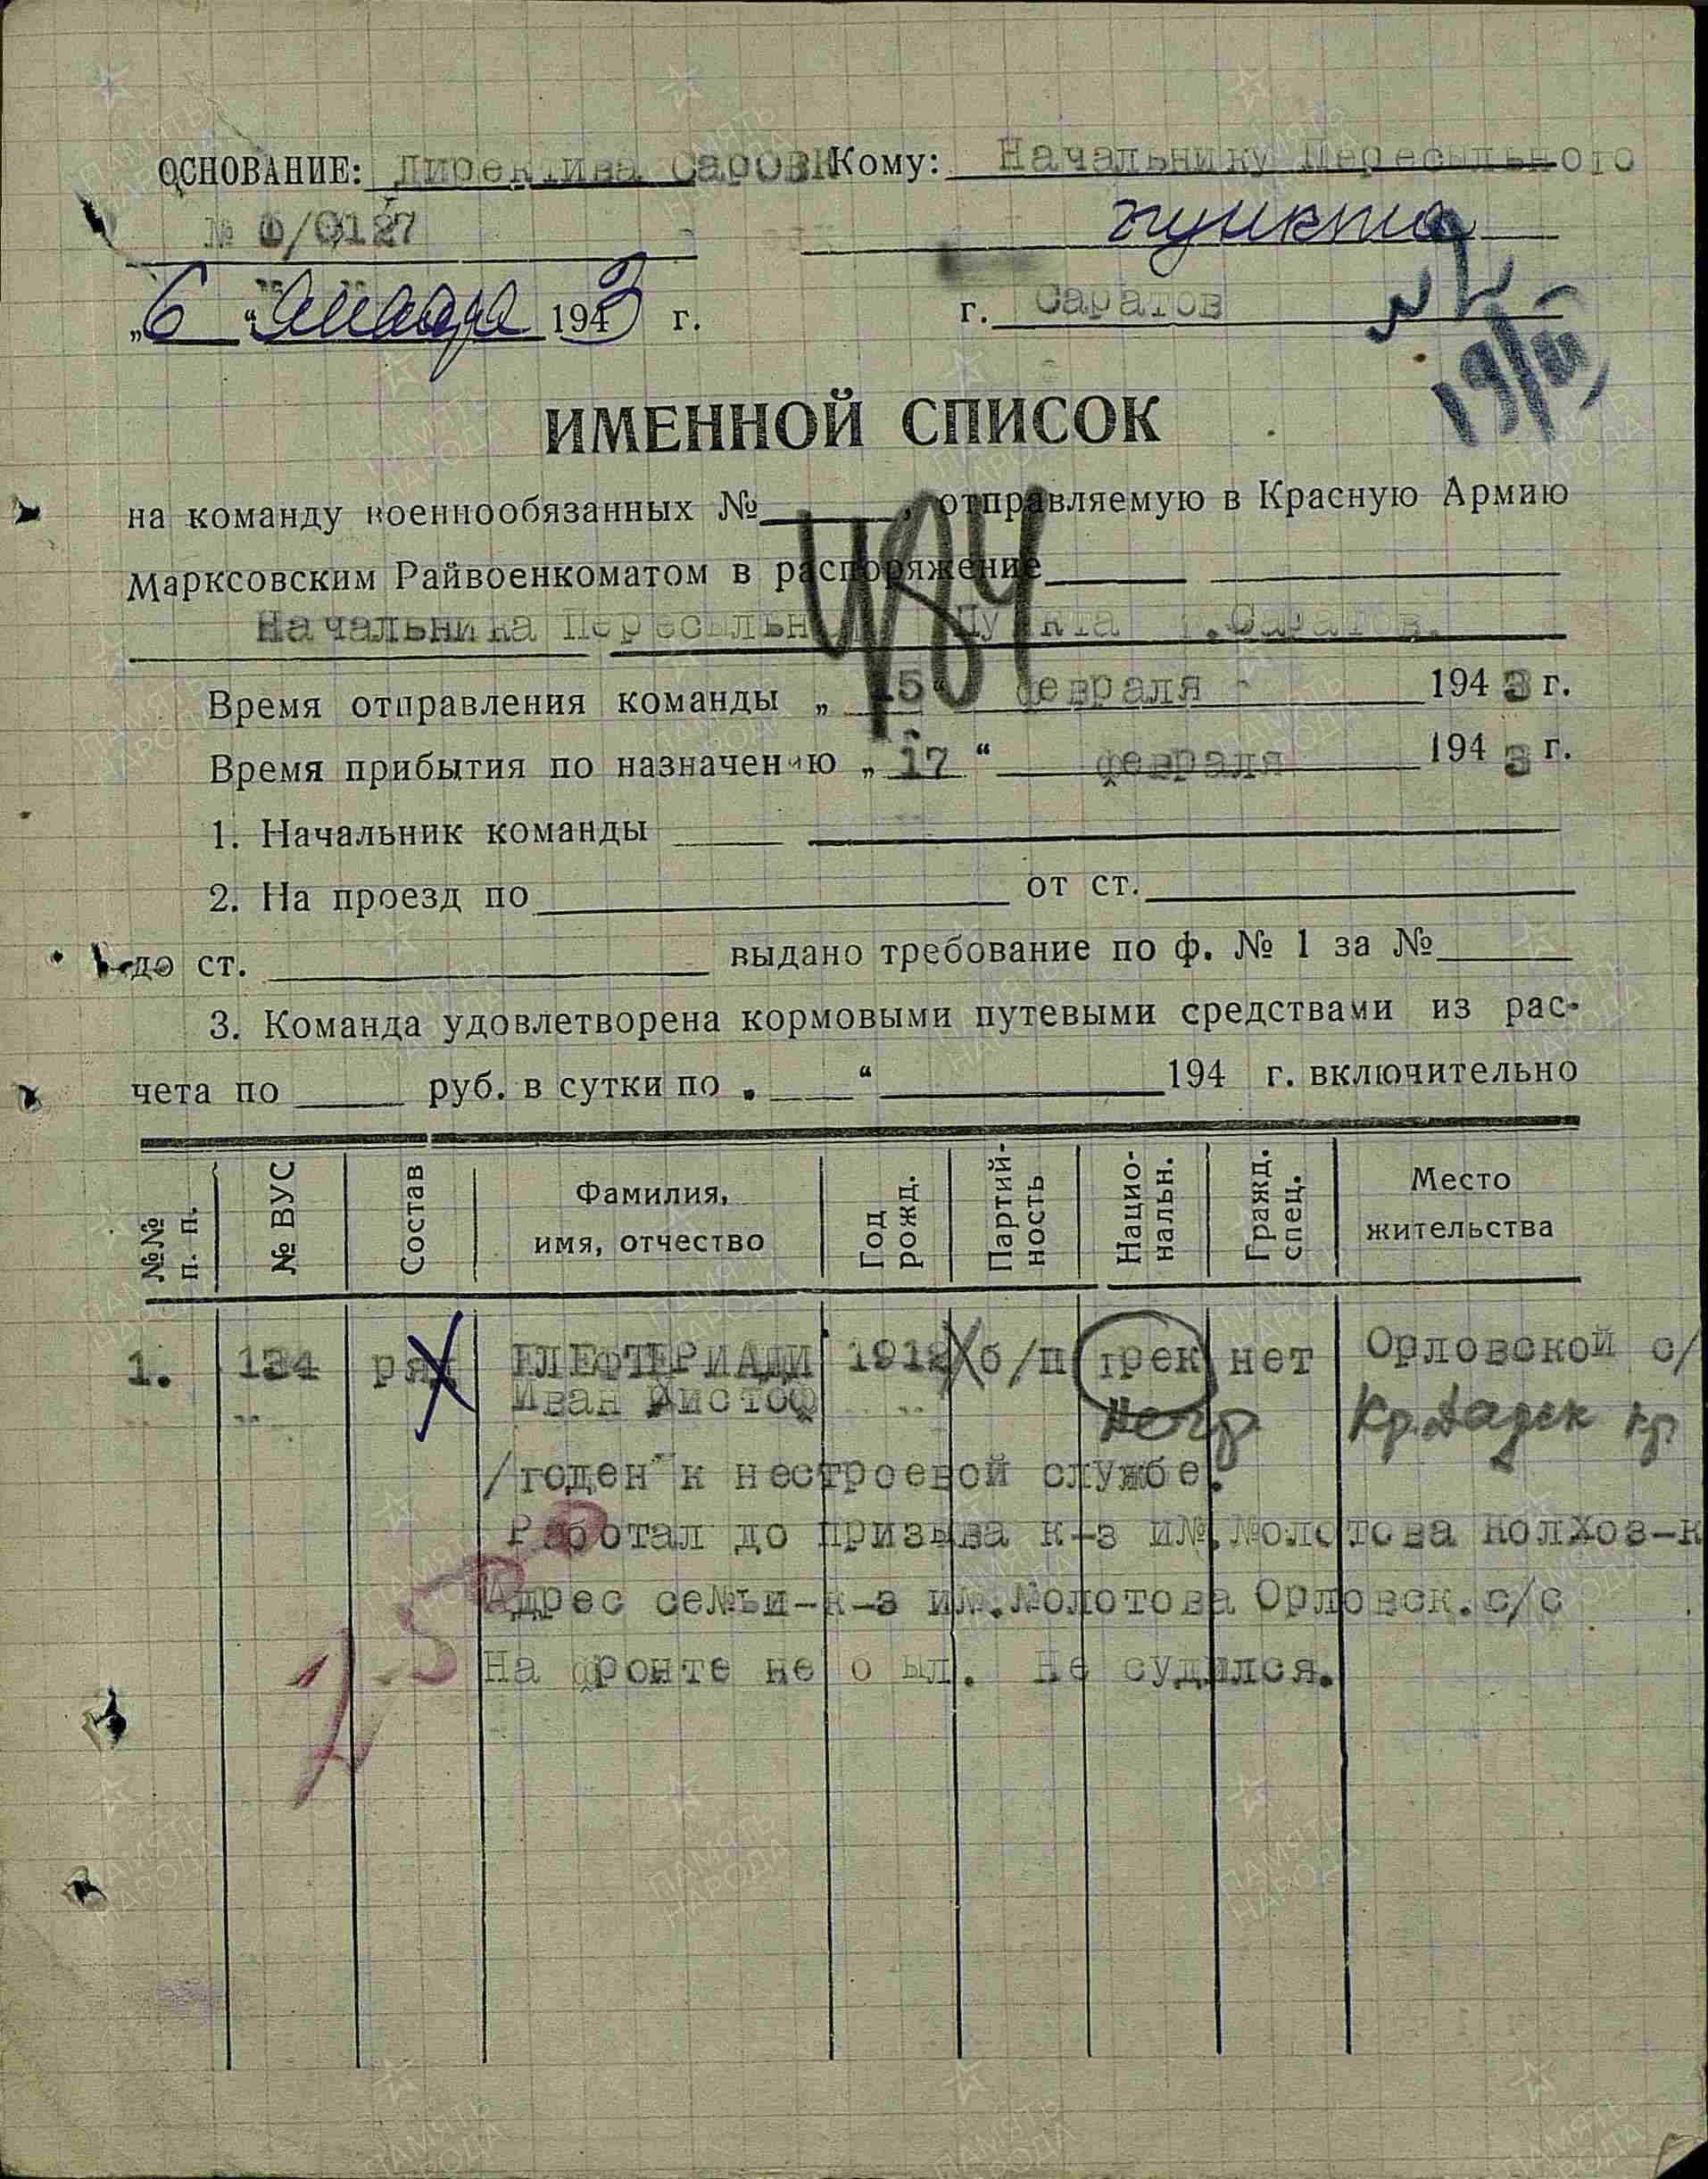 ОСНОВАНИЕ: Директива Саровк Кому: Начальнику Пересыльного
№ Ф/0127 пункта
„6“ января 1943 г. г. Саратов
19/II
ИМЕННОЙ СПИСОК
на команду военнообязанных № , отправляемую в Красную Армию
Марксовским Райвоенкоматом в распоряжение
Начальника Пересыльн Пункта г.Саратов.
Время отправления команды „15“ февраля 1943 г.
Время прибытия по назначению „17“ февраля 1943 г.
1. Начальник команды
2. На проезд по от ст.
до ст. выдано требование по ф. № 1 за №
3. Команда удовлетворена кормовыми путевыми средствами из рас-
чета по руб. в сутки по „ “ 194 г. включительно
№№ п. п. № ВУС Состав Фамилия, имя, отчество Год рожд. Партий-ность Нацио-нальн. Гражд. спец. Место жительства
1. 134 ряд ЕЛЕФТЕРИАДИ 1912 б/п грек нет Орловской с/
Иван Христоф
/годен к нестроевой службе.
Работал до призыва к-з им.Молотова колхоз-к
Адрес семьи-к-з им.Молотова Орловск.с/с
На фронте не был. Не судился.
ПАМЯТЬ НАРОДА